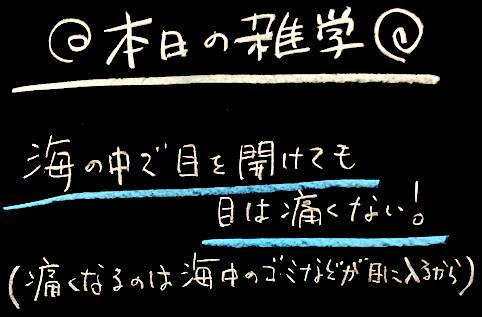 本日の雑学
海の中で目を開けても
目は痛くない!。
(痛くなるのは海中のゴミなどが目に入るから)